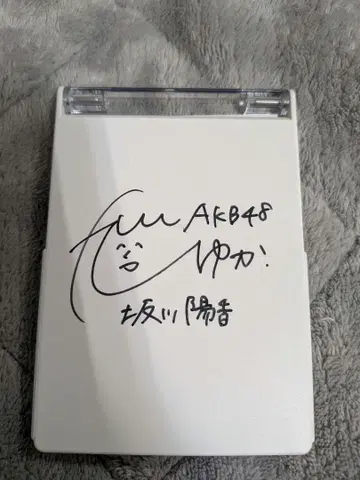 AKB48
ゆか!
坂川陽香